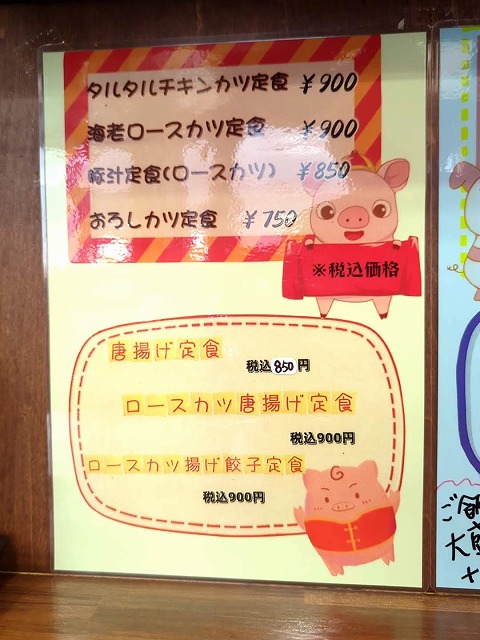 タルタルチキンカツ定食 ¥900
海老ロースカツ定食 ¥900
豚汁定食(ロースカツ) ¥850
おろしカツ定食 ¥750
※税込価格
唐揚げ定食
税込850円
ロースカツ唐揚げ定食
税込900円
ロースカツ揚げ餃子定食
税込900円
大